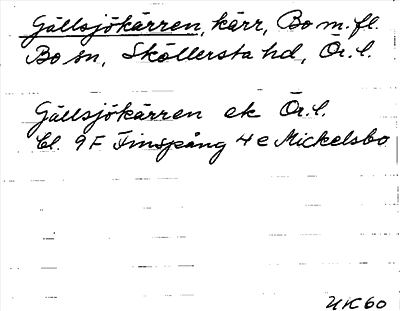 Gällsjökärren, kärr, Bo m.fl.
Bo sn, Sköllersta hd, Ör. l.
Gällsjökärren ek Ör. l.
Bl. 9F Finspång 4e Mickelsbo
UK60